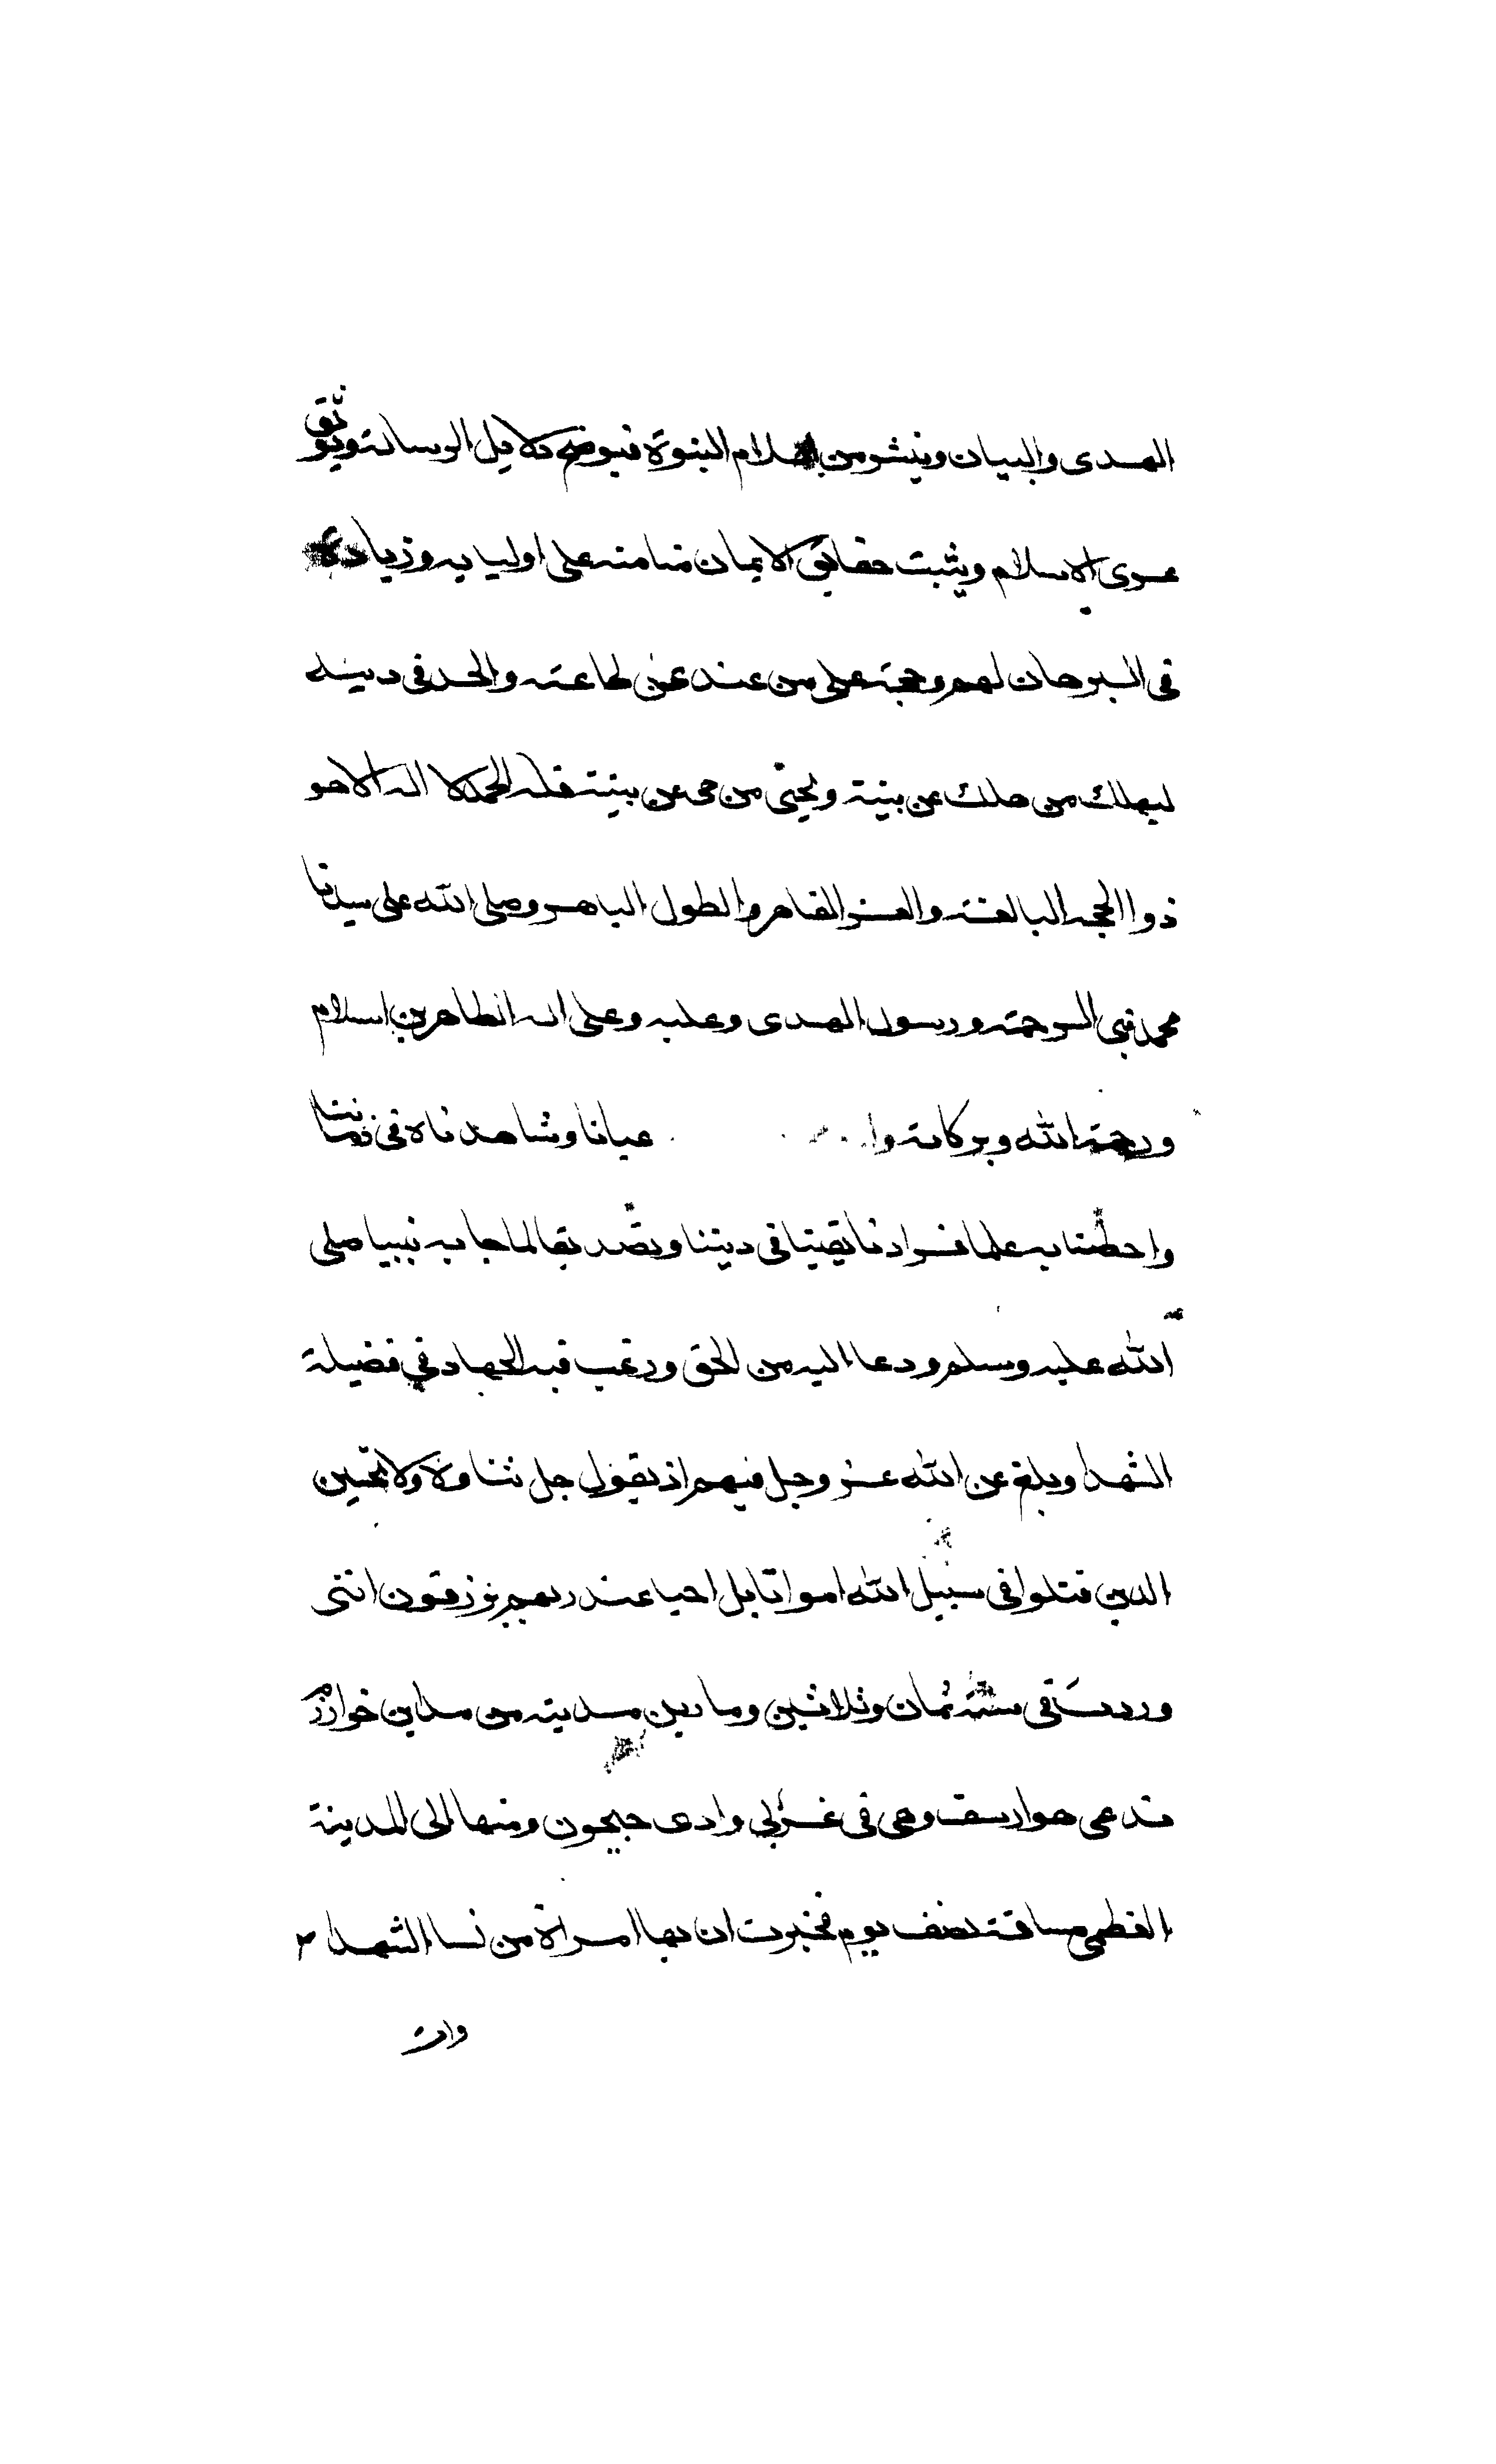 الهدى والبيان وينشر من اعلام النبوة فيوضح دلايل الرسالة ويوثق
عرى الاسلام ويثبت حقايق الايمان منا منه على اوليايه وزيادة
فى البرهان لهم وحجة على من عند عن طاعته والحد فى دينه
ليهلك من هلك عن بينة ويحيى من حى عن بينة فله الحمد لا اله الا هو
ذوا الحجه البالغة والعز القاهر والطول الباهر وصلى الله على سيدنا
محمد نبى الرحمة ورسول الهدى وعليه وعلى اله الطاهرين السلام
ورحمة الله وبركاته عيانا وشاهدناه فى زماننا
واحطنا به علما فزادنا يقينا فى ديننا وتصديقا لما جا به نبينا صلى
الله عليه وسلم ودعا اليه من الحق ورغب فيه الجهاد فى فضيلة
الشهدا وبلغ عن الله عز وجل فيهم اذ يقول جل ثناوه ولا تحسبن
الذين قتلوا فى سبيل الله امواتا بل احيا عند ربهم يرزقون انني
وردت فى سنة ثمان وثلاثين ومايين مدينه من مداين خوارزم
تدعى هوارسف وهى فى غربى وادى جيحون ومنها الى المدينة
العظمى مسافة نصف يوم فخبرت ان بها امراة من نسا الشهدا
وات